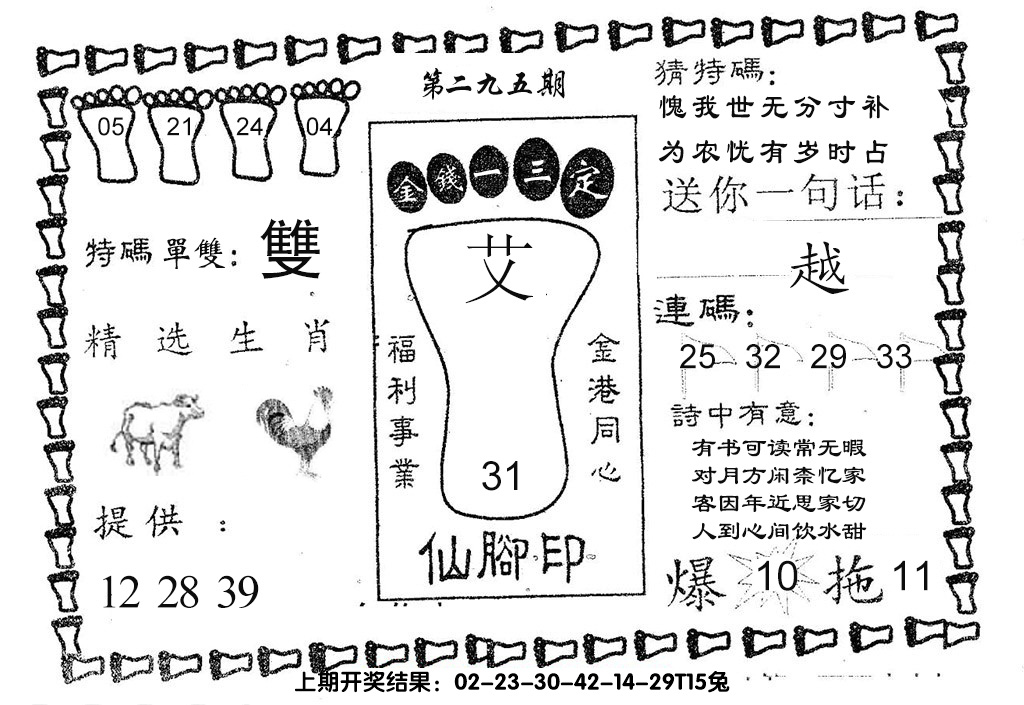 第二九五期
05 21 24 04
特碼單雙：雙
精选生肖
提供：
12 28 39
金錢一三定
艾
福利事業
金港同心
31
仙腳印
猜特碼：
愧我世无分寸补
为农忧有岁时占
送你一句话：
越
連碼：
25 32 29 33
詩中有意：
有书可读常无暇
对月方闲柰忆家
客因年近思家切
人到心间饮水甜
爆 10 拖 11
上期开奖结果：02-23-30-42-14-29T15兔